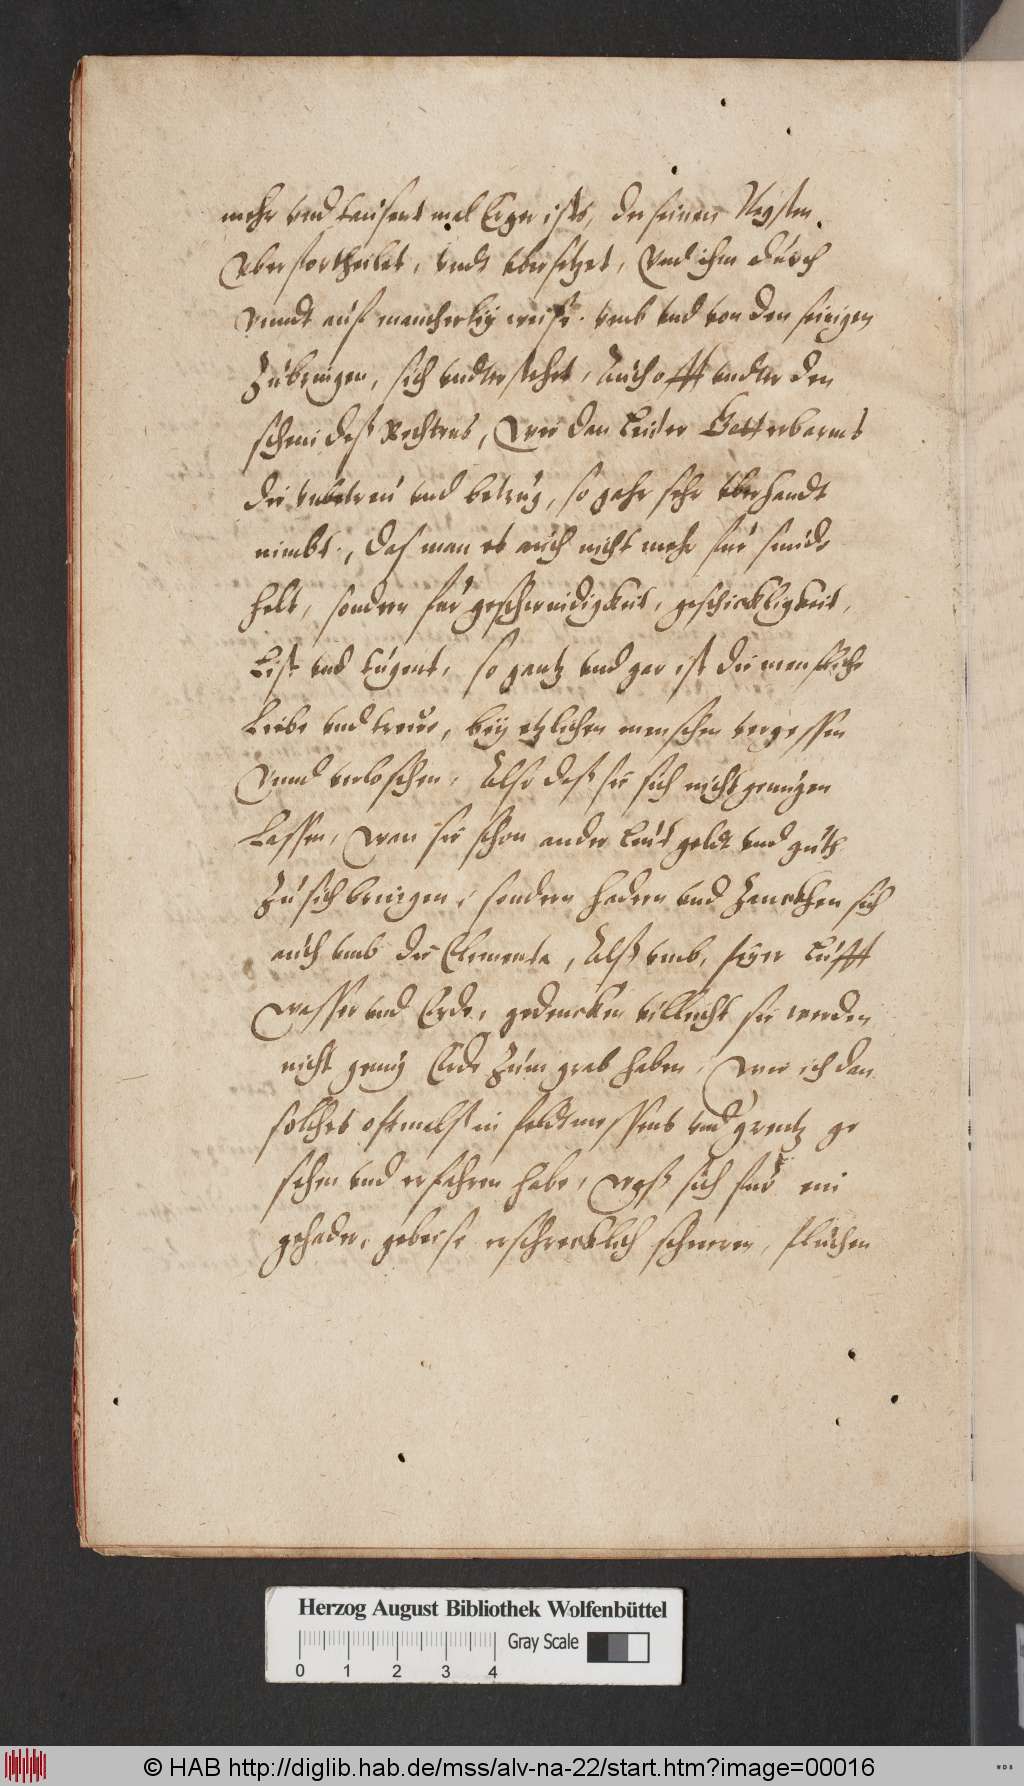 mehr vnd tausent mal Erger ists, der seinen Negsten
Vberfortheilet, vndt vbersetzet, Vnd ihm durch
vnndt auf mancherley weise vmb vnd von den seinigen
Zubringen, sich vndterstehet, Auch offt vndter den
schein deß Rechtens, Wie dan Leider Gott erbarms
die vnd betrug, so gahr sehr vberhandt
nimbt, das man es auch nicht mehr für sünde
helt, sondern für geschwindigkeit, geschickligkeit,
List vnd tugent, so gantz vnd gar ist die menschliche
Liebe vnd trewe, bey etzlichen menschen vergessen
Vnnd verloschen, Also daß sie sich nicht genugen
Lassen, wan sie schon ander Leut geldt vnd guth
Zu sich bringen, sondern hadern vnd Zanckhen sich
auch vmb die Elementa, Alß vmb, feyer Lufft
Wasser vnd Erde, gedencken villeicht sie werden
nicht genug Erde Zum grab haben, Wie ich dan
solches oftmals in feldtmessens vnd grentz ge
sehen vnd erfahren habe, Waß sich für ein
gehader, gebeise erschrecklich schweren, fluchen
Herzog August Bibliothek Wolfenbüttel
Gray Scale
0 1 2 3 4
© HAB http://diglib.hab.de/mss/alv-na-22/start.htm?image=00016